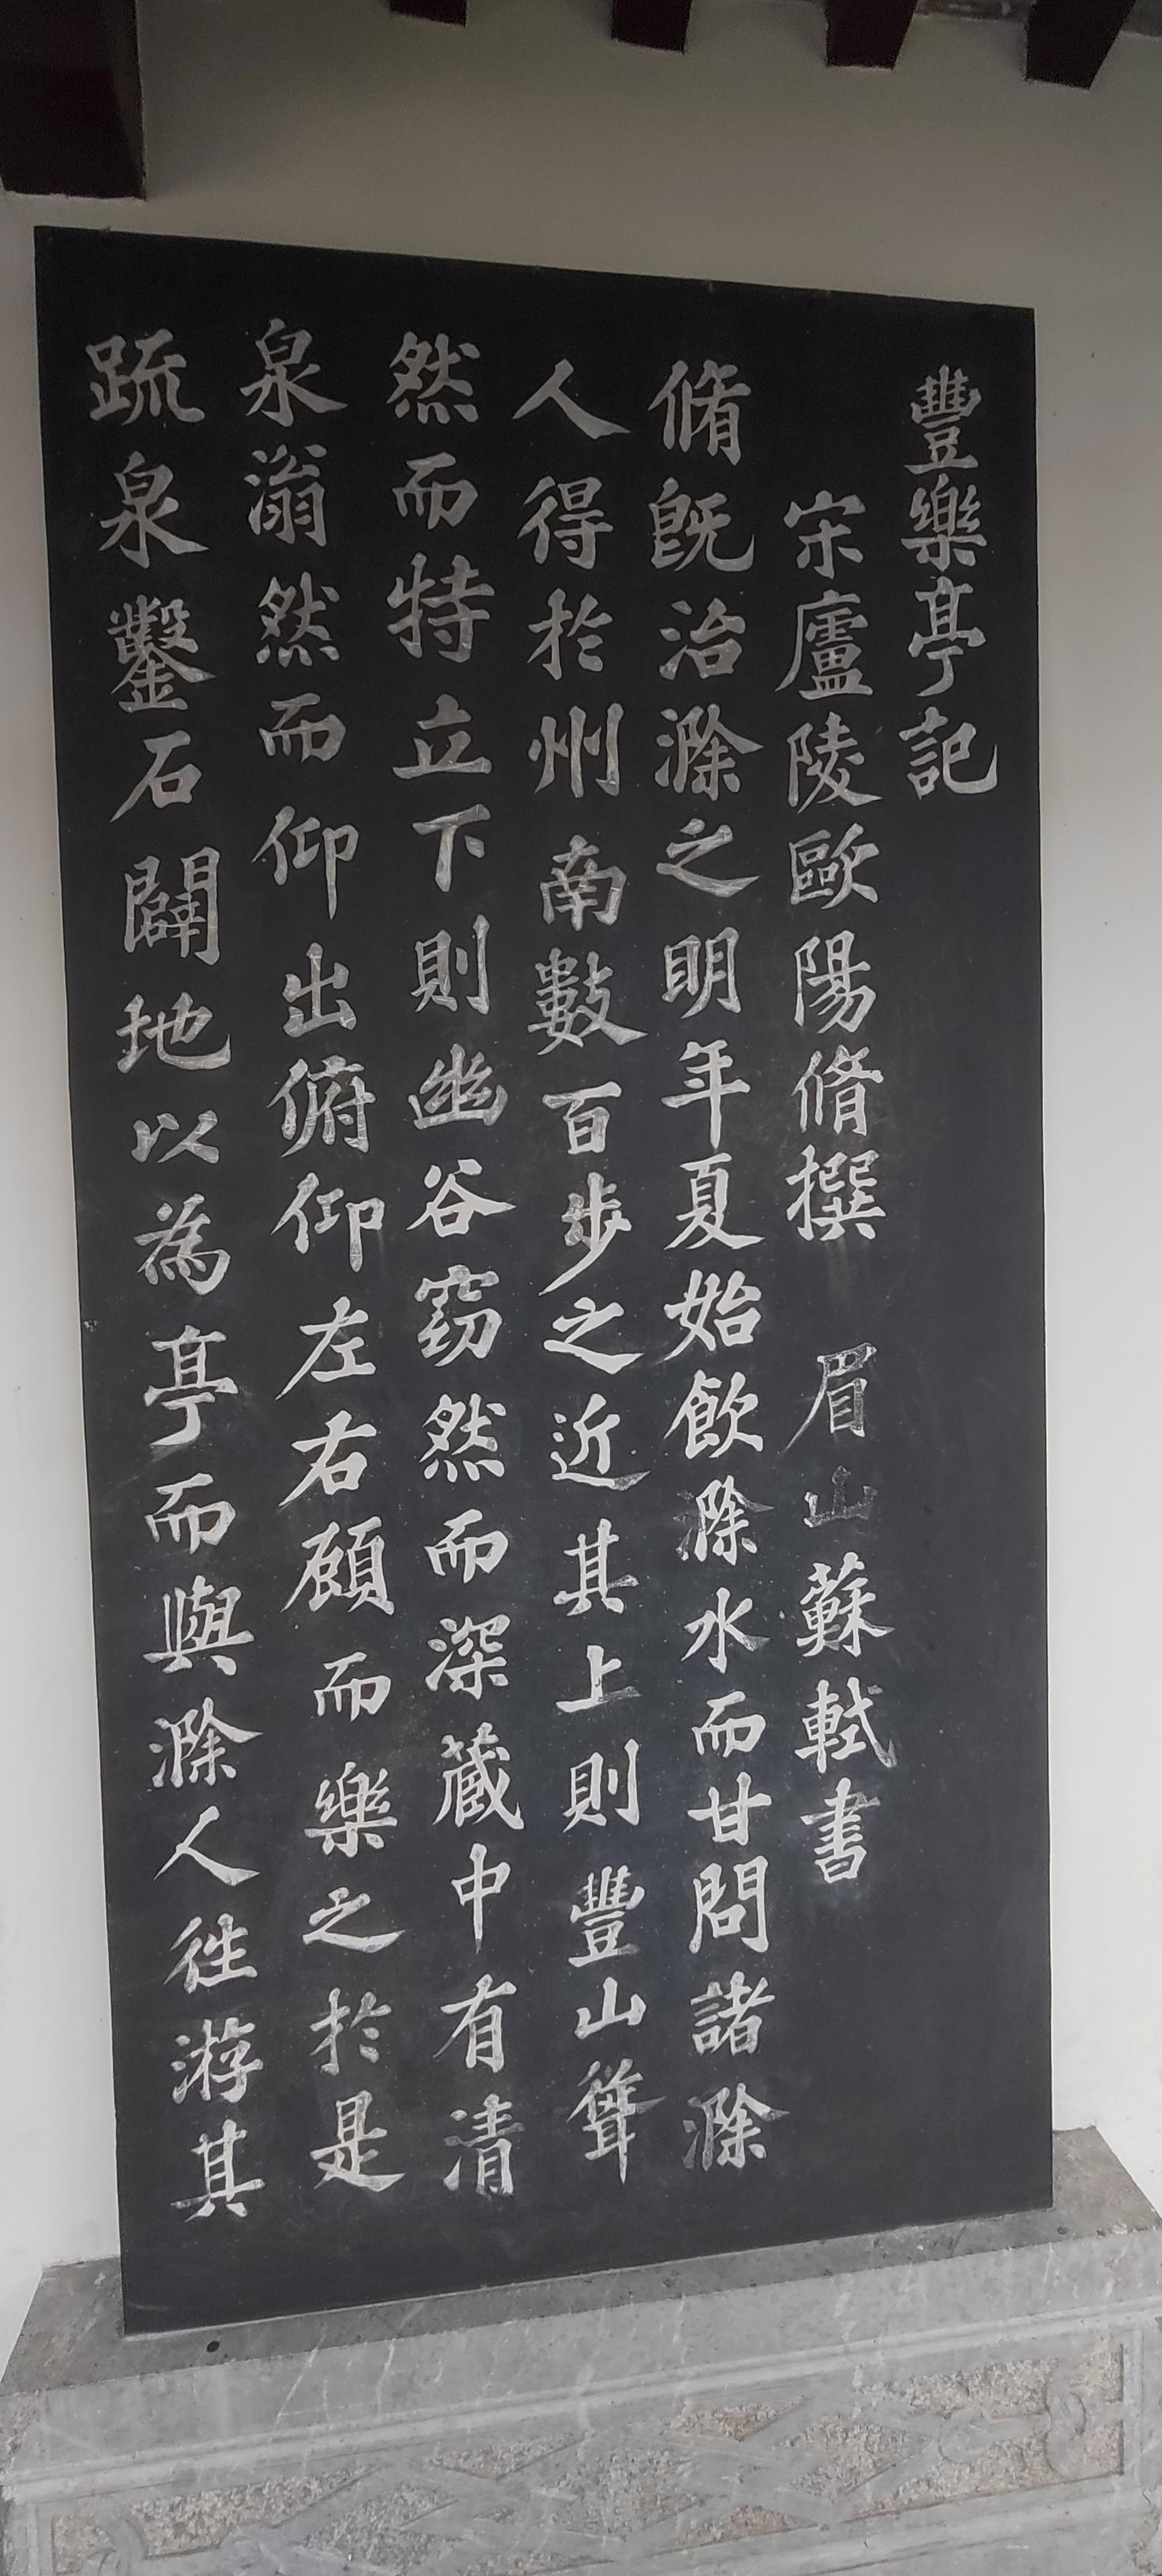 豐樂亭記
宋廬陵歐陽脩撰 眉山蘇軾書
脩既治滁之明年夏始飲滁水而甘問諸滁
人得於州南數百步之近其上則豐山聳
然而特立下則幽谷窈然而深藏中有清
泉滃然而仰出俯仰左右顧而樂之於是
疏泉鑿石闢地以為亭而與滁人往游其